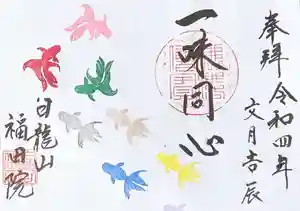 奉拝 令和四年
文月吉辰
一味同心
白龍山
福田院